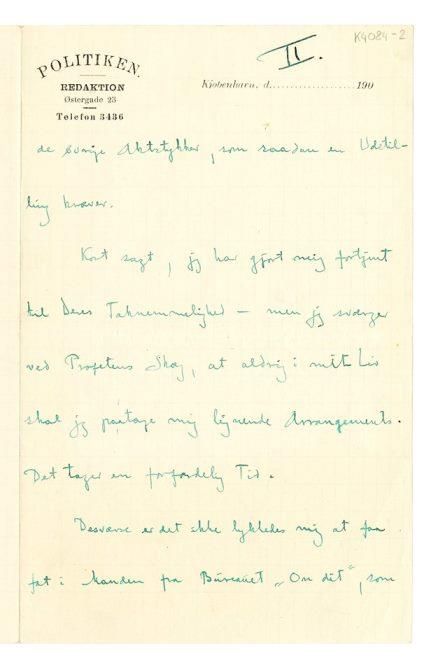 K4084-2
II.
POLITIKEN.
REDAKTION
Østergade 23
Telefon 3436
Kjøbenhavn, d. .................... 190
de øvrige Aktstykker, som saadan en Udstil-
ling kræver.
Kort sagt, jeg har gjort mig fortjent
til Deres Taknemmelighed – men jeg sværger
ved Profetens Skæg, at aldrig i mit Liv
skal jeg paatage mig lignende Arrangements.
Det tager en forfærdelig Tid.
Desværre er det ikke lykkedes mig at faa
fat i Manden fra Büreauet „On dit", som